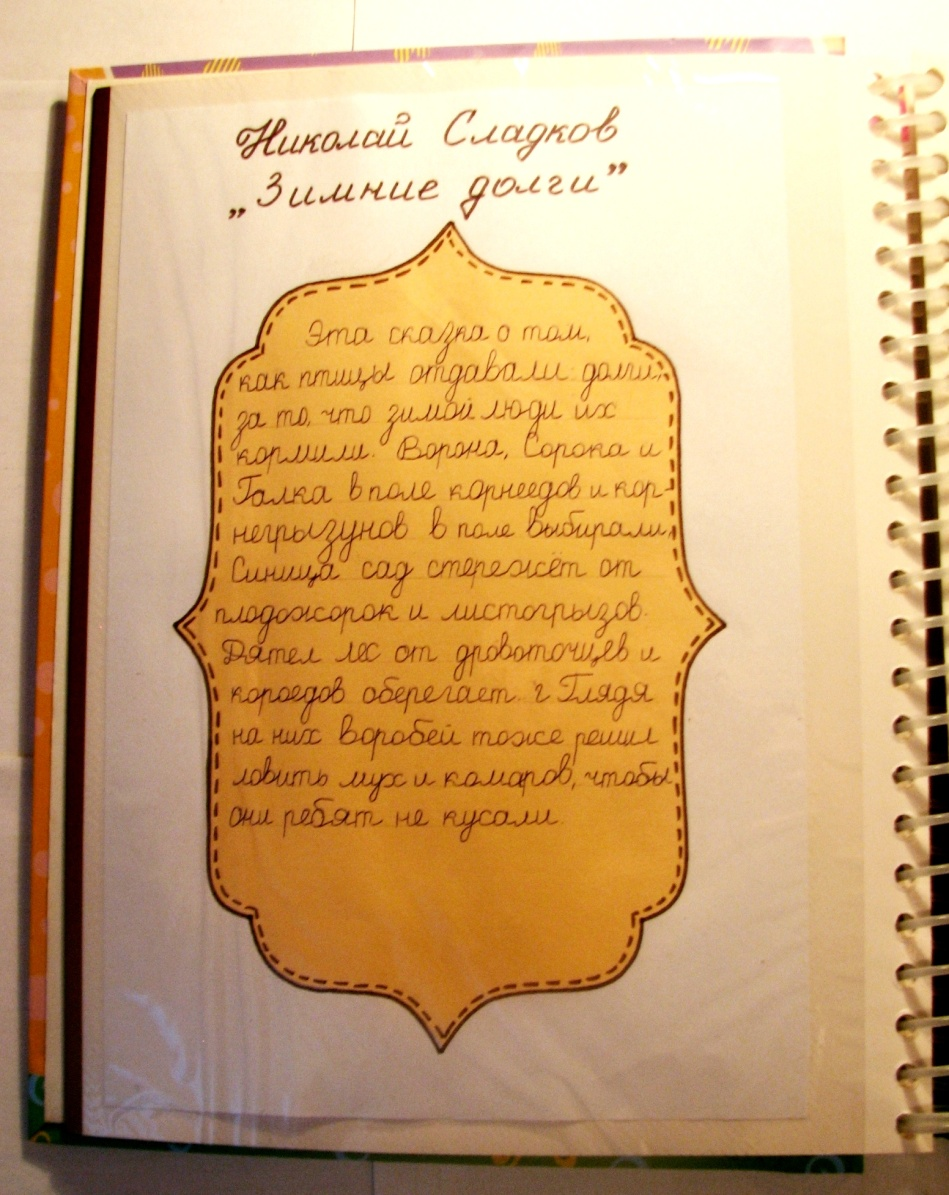 Николай Сладков
„Зимние долги”
Эта сказка о том,
как птицы отдавали долги,
за то, что зимой люди их
кормили. Ворона, Сорока и
Галка в поле корнеедов и кор-
негрызунов в поле выбирали,
Синица сад стережёт от
плодожорок и листогрызов.
Дятел лес от дровоточцев и
короедов оберегает. Глядя
на них воробей тоже решил
ловить мух и комаров, чтобы
они ребят не кусали.